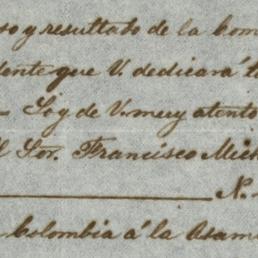 so y resultado de la com
dente que V. dedicará t
— Soy de V. muy atento
l Sor. Francisco Mich
N.
Colombia á la Asam